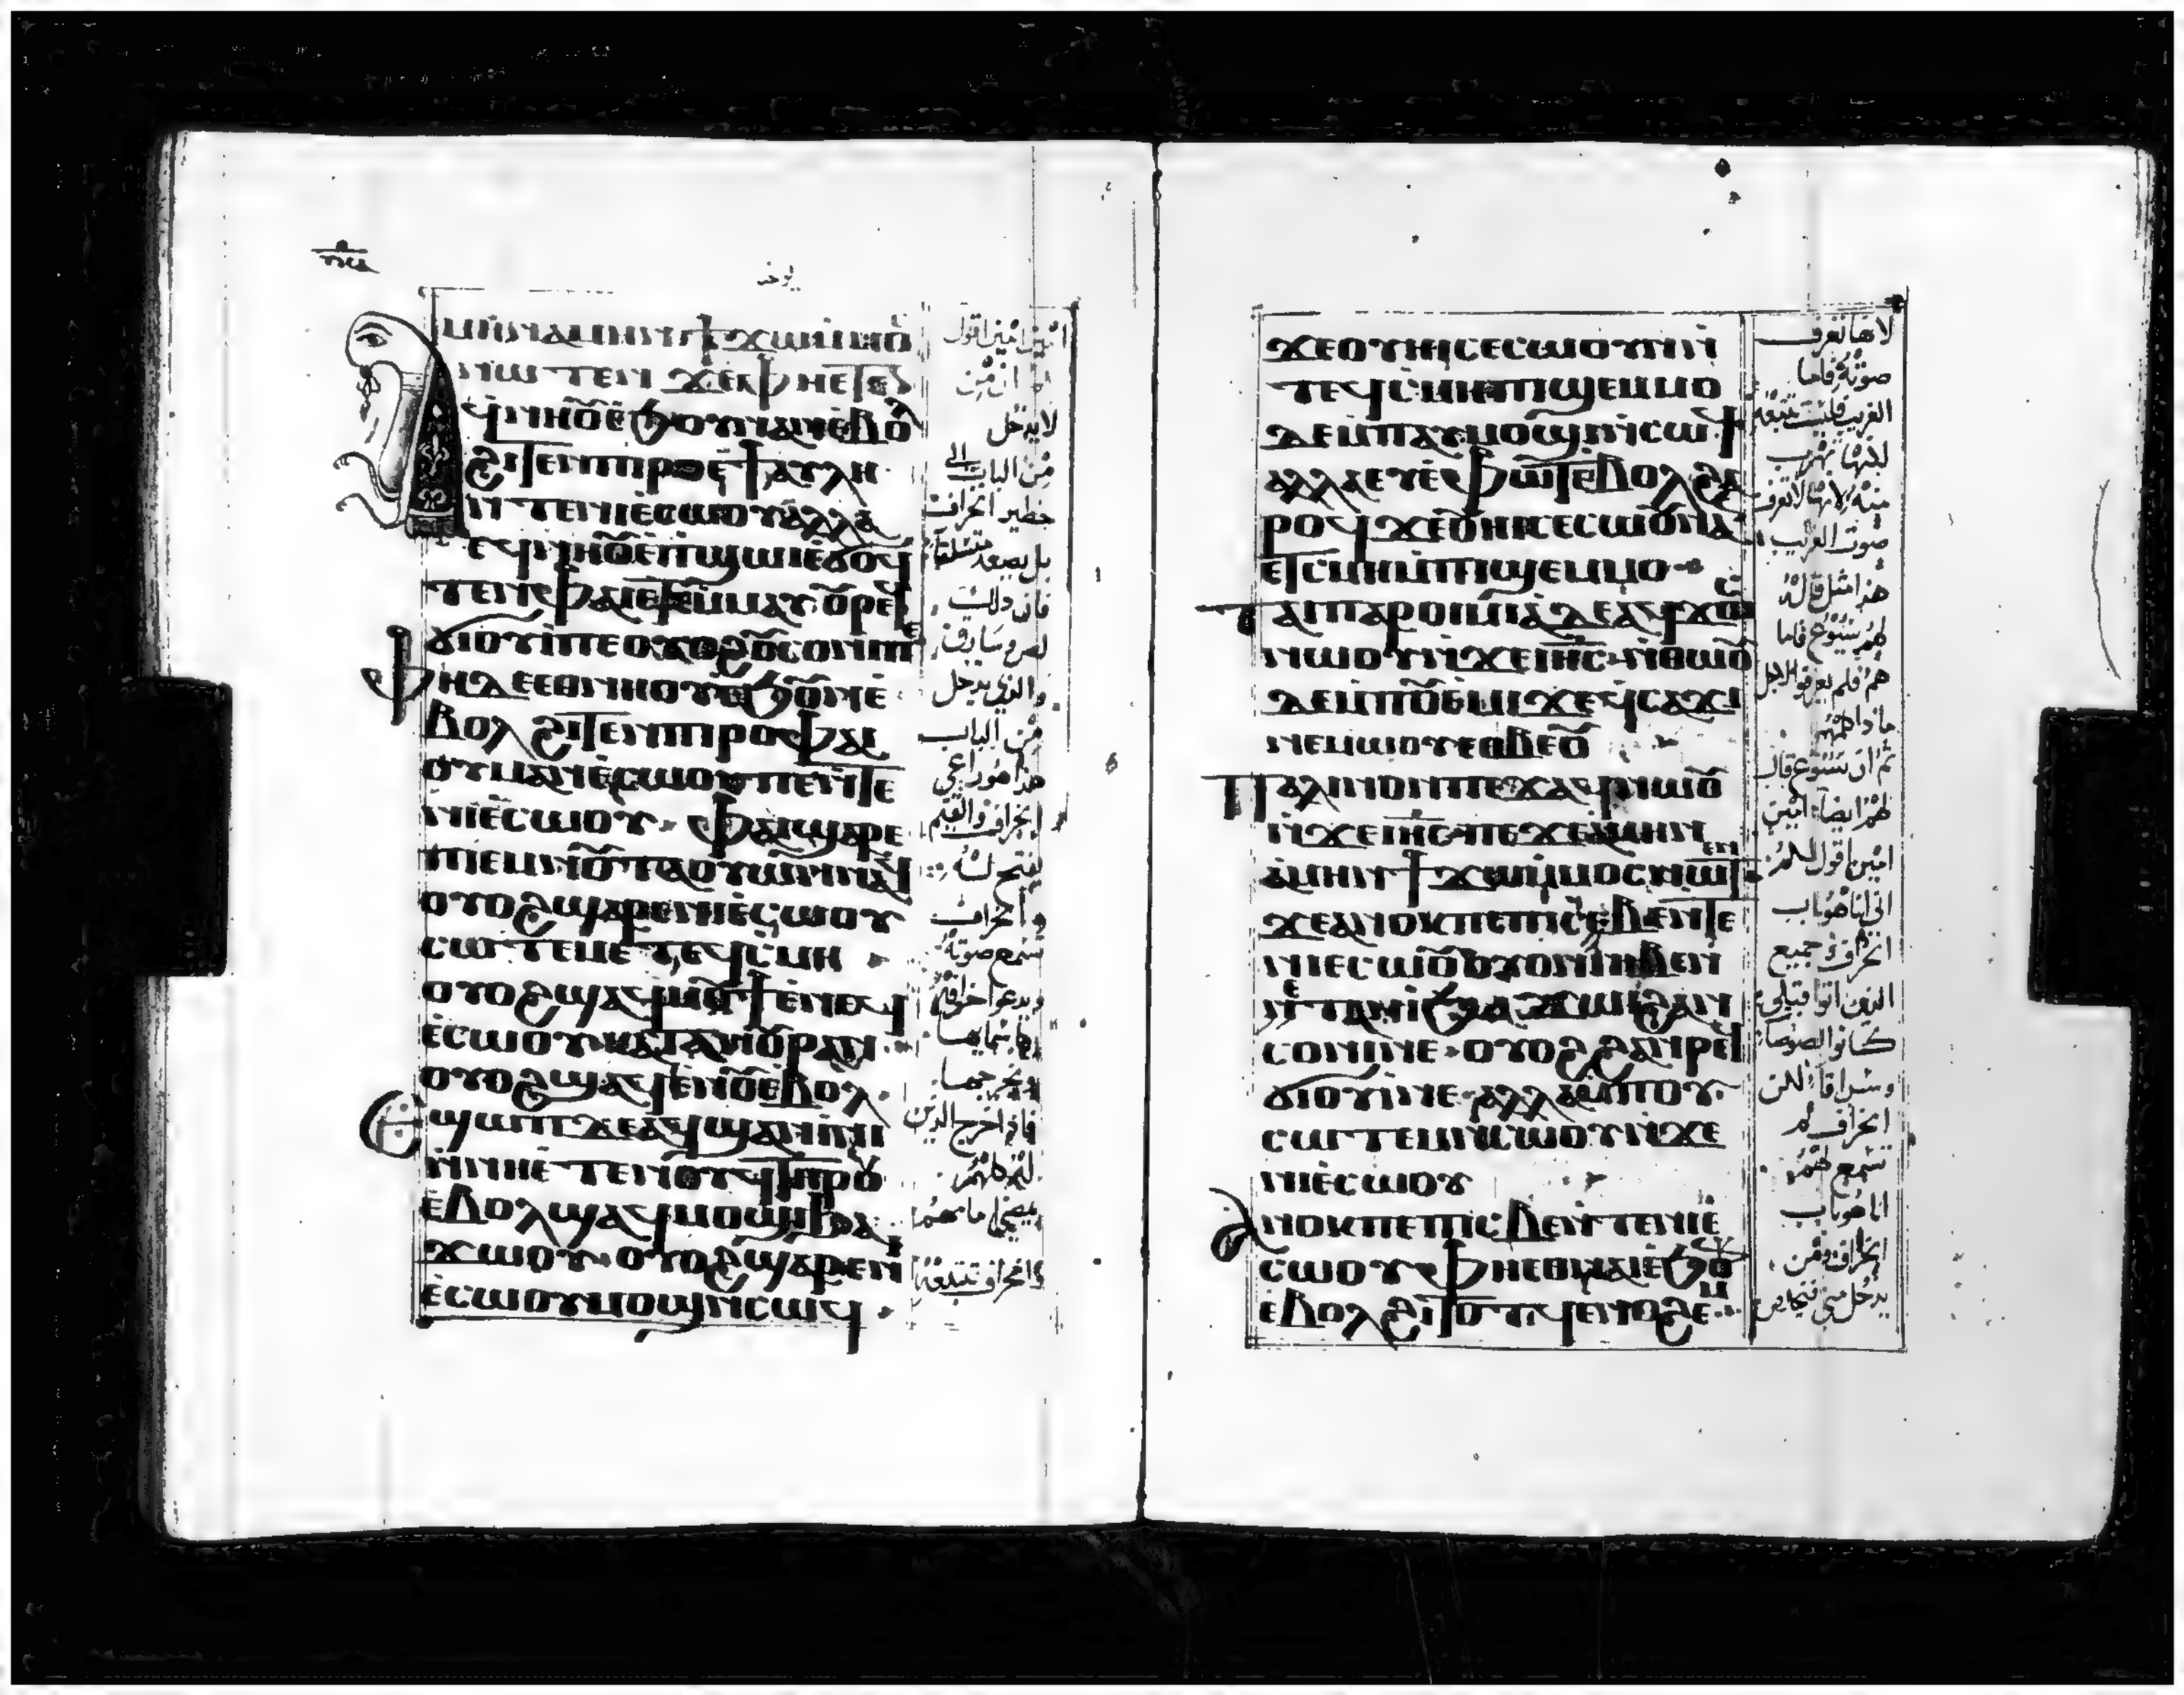 ⲙⲏⲛ ⲁⲙⲏⲛ ϯϫⲱ ⲙⲙⲟ
ⲛⲱⲧⲉⲛ ϫⲉ ⲫⲏⲉⲧⲉ
ϥⲛⲏⲟⲩ ⲉϧⲟⲩⲛ ⲁⲛ ⲉⲃⲟⲗ
ϩⲓⲧⲉⲛ ⲡⲓⲣⲟ ⲉϯⲁⲩⲗⲏ
ⲛⲧⲉ ⲛⲓⲉⲥⲱⲟⲩ ⲁⲗⲗⲁ
ⲉϥⲛⲏⲟⲩ ⲉⲡϣⲱⲓ
ⲧⲉⲛ ⲫⲁⲓ ⲉⲧⲉⲙⲙⲁⲩ ⲟⲩⲣⲉϥ
ϭⲓⲟⲩⲓ ⲡⲉ ⲟⲩⲟϩ ⲟⲩⲥⲟⲛⲓ ⲡⲉ
ⲫⲏ ⲇⲉ ⲉⲑⲛⲏⲟⲩ ⲉϧⲟⲩⲛ ⲉ
ⲃⲟⲗ ϩⲓⲧⲉⲛ ⲡⲓⲣⲟ ⲫⲁⲓ
ⲟⲩⲙⲁⲛⲉⲥⲱⲟⲩ ⲡⲉ ⲛⲧⲉ
ⲛⲓⲉⲥⲱⲟⲩ ⲫⲁⲓ ϣⲁⲣⲉ
ⲡⲓⲉⲙⲛⲟⲩⲧ ⲁⲟⲩⲱⲛ ⲛⲁϥ
ⲟⲩⲟϩ ϣⲁⲣⲉ ⲛⲓⲉⲥⲱⲟⲩ
ⲥⲱⲧⲉⲙ ⲉⲧⲉϥⲥⲙⲏ
ⲟⲩⲟϩ ϣⲁϥⲙⲟⲩϯ ⲉⲛⲉϥ
ⲉⲥⲱⲟⲩ ⲕⲁⲧⲁ ⲛⲟⲩⲣⲁⲛ
ⲟⲩⲟϩ ϣⲁϥⲉⲛⲟⲩ ⲉⲃⲟⲗ
ⲉϣⲱⲡ ⲇⲉ ⲁϥϣⲁⲛⲓⲛⲓ
ⲛⲛⲏ ⲉⲧⲉⲛⲟⲩϥ ⲧⲏⲣⲟⲩ
ⲉⲃⲟⲗ ϣⲁϥⲙⲟϣⲓ ϧⲁ
ϫⲱⲟⲩ ⲟⲩⲟϩ ϣⲁⲣⲉ ⲛⲓ
ⲉⲥⲱⲟⲩ ⲙⲟϣⲓ ⲛⲥⲱϥ
امين امين اقول
لا يدخل
من الباب الى
حظير الخراف
فان ذلك
لص وسارق
والذي يدخل
من الباب
هذا هو راعي
الخراف
يفتح له
والخراف
تسمع صوته
ويدعو اخرافه
باسمايها
ويخرجها
فاذا اخرج الذين
يمضي امامهم
والخراف تتبعه
ϫⲉ ⲟⲩⲏⲓ ⲥⲉⲥⲱⲟⲩⲛ ⲛ
ⲧⲉϥⲥⲙⲏ ⲡⲓϣⲉⲙⲙⲟ
ⲇⲉ ⲙⲡⲁⲩⲙⲟϣⲓ ⲛⲥⲱϥ
ⲁⲗⲗⲁ ⲉⲩⲉⲫⲱⲧ ⲉⲃⲟⲗ ϩⲁ
ⲣⲟϥ ϫⲉ ⲟⲩⲏⲓ ⲥⲉⲥⲱⲟⲩⲛ ⲁⲛ
ⲉⲧⲥⲙⲏ ⲙⲡⲓϣⲉⲙⲙⲟ
ⲧⲁⲓⲡⲁⲣⲟⲓⲙⲓⲁ ⲇⲉ ⲁϥϫⲟⲥ
ⲛⲱⲟⲩ ⲛϫⲉ ⲓⲏⲥ ⲛⲑⲱⲟⲩ
ⲇⲉ ⲙⲡⲟⲩⲉⲙⲓ ϫⲉ ⲉϥⲥⲁϫⲓ
ⲛⲉⲙⲱⲟⲩ ⲉⲑⲃⲉ ⲟⲩ
ⲡⲁⲗⲓⲛ ⲟⲛ ⲡⲉϫⲁϥ ⲛⲱⲟⲩ
ⲛϫⲉ ⲓⲏⲥ ϫⲉ ⲁⲙⲏⲛ
ⲁⲙⲏⲛ ϯϫⲱ ⲙⲙⲟⲥ ⲛⲱⲧⲉⲛ
ϫⲉ ⲁⲛⲟⲕ ⲡⲉ ⲡⲓⲥⲃⲉ ⲛⲧⲉ
ⲛⲓⲉⲥⲱⲟⲩ ⲟⲩⲟⲛ ⲛⲓⲃⲉⲛ
ⲉⲧⲁⲩⲓ ϧⲁϫⲱⲓ ϩⲁⲛ
ⲥⲟⲛⲓ ⲛⲉ ⲟⲩⲟϩ ϩⲁⲛⲣⲉϥ
ϭⲓⲟⲩⲓ ⲛⲉ ⲁⲗⲗⲁ ⲙⲡⲟⲩ
ⲥⲱⲧⲉⲙ ⲛⲥⲱⲟⲩ ⲛϫⲉ
ⲛⲓⲉⲥⲱⲟⲩ
ⲁⲛⲟⲕ ⲡⲉ ⲡⲓⲥⲃⲉ ⲛⲧⲉ ⲛⲓⲉ
ⲥⲱⲟⲩ ⲫⲏ ⲉⲑⲛⲁⲓ ⲉϧⲟⲩⲛ
ⲉⲃⲟⲗ ϩⲓⲧⲟⲧ ϥⲉⲛⲟϩⲉⲙ
لانها تعرف
صوته فاما
الغريب فليست تتبعه
لكنها تهرب
منه لانها لا تعرف
صوت الغريب
هذا مثل قاله
لهم يسوع فاما
هم فلم يعرفوا
ثم ان يسوع قال
لهم ايضا امين
امين اقول لكم
اني انا هو باب
الخراف جميع
الذين اتوا قبلي
كانوا لصوصا
وسراقا لكن
الخراف لم
تسمع لهم
انا هو باب
الخراف فمن
يدخل